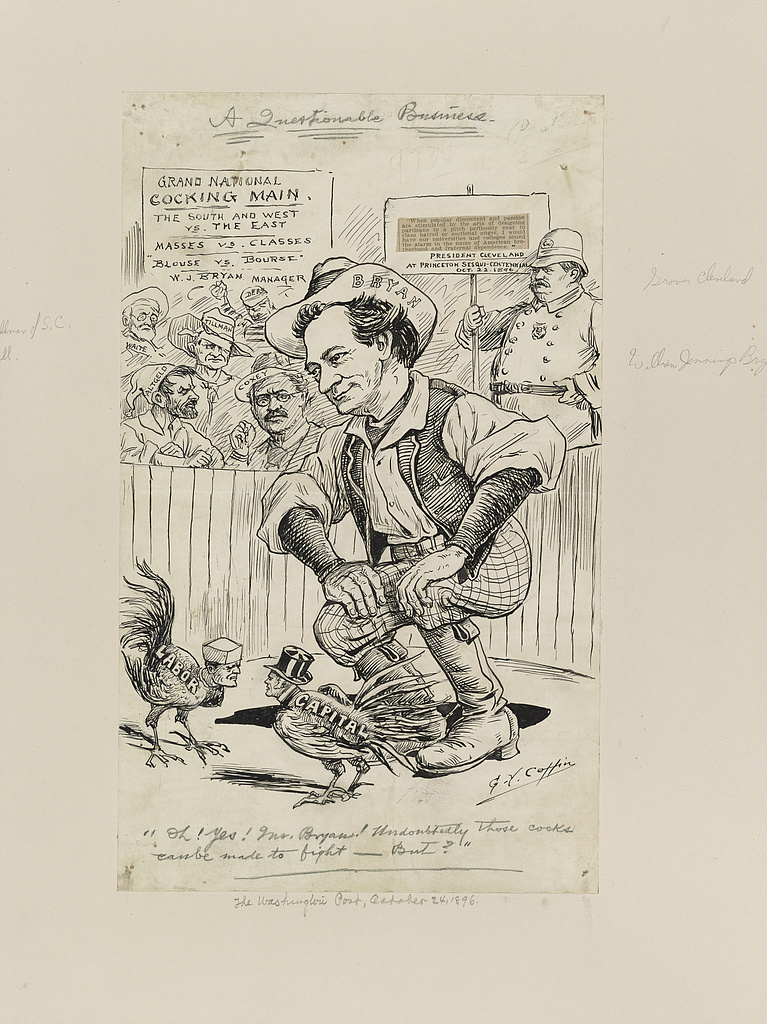 A Questionable Business.
GRAND NATIONAL
COCKING MAIN.
THE SOUTH AND WEST
VS. THE EAST
MASSES VS. CLASSES
"BLOUSE VS. BOURSE"
W. J. BRYAN MANAGER
"When popular discontent and passion
are stimulated by the arts of designing
partisans to a pitch perilously near to
class hatred or sectional anger, I would
have our universities and colleges sound
the alarm in the name of American bro-
therhood and fraternal dependence."
PRESIDENT CLEVELAND
AT PRINCETON SESQUI-CENTENNIAL
OCT. 22. 1896.
BRYAN
DEBS
TILLMAN
WAITE
Grover Cleveland
of S.C.
William Jennings
LABOR
CAPITAL
G. Y. Coffin
"Oh! Yes! Mr. Bryan! Undoubtedly those cocks
can be made to fight — But?"
The Washington Post, October 24, 1896.